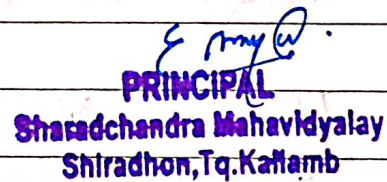 PRINCIPAL
Sharadchandra Mahavidyalay
Shiradhon,Tq.Kallamb